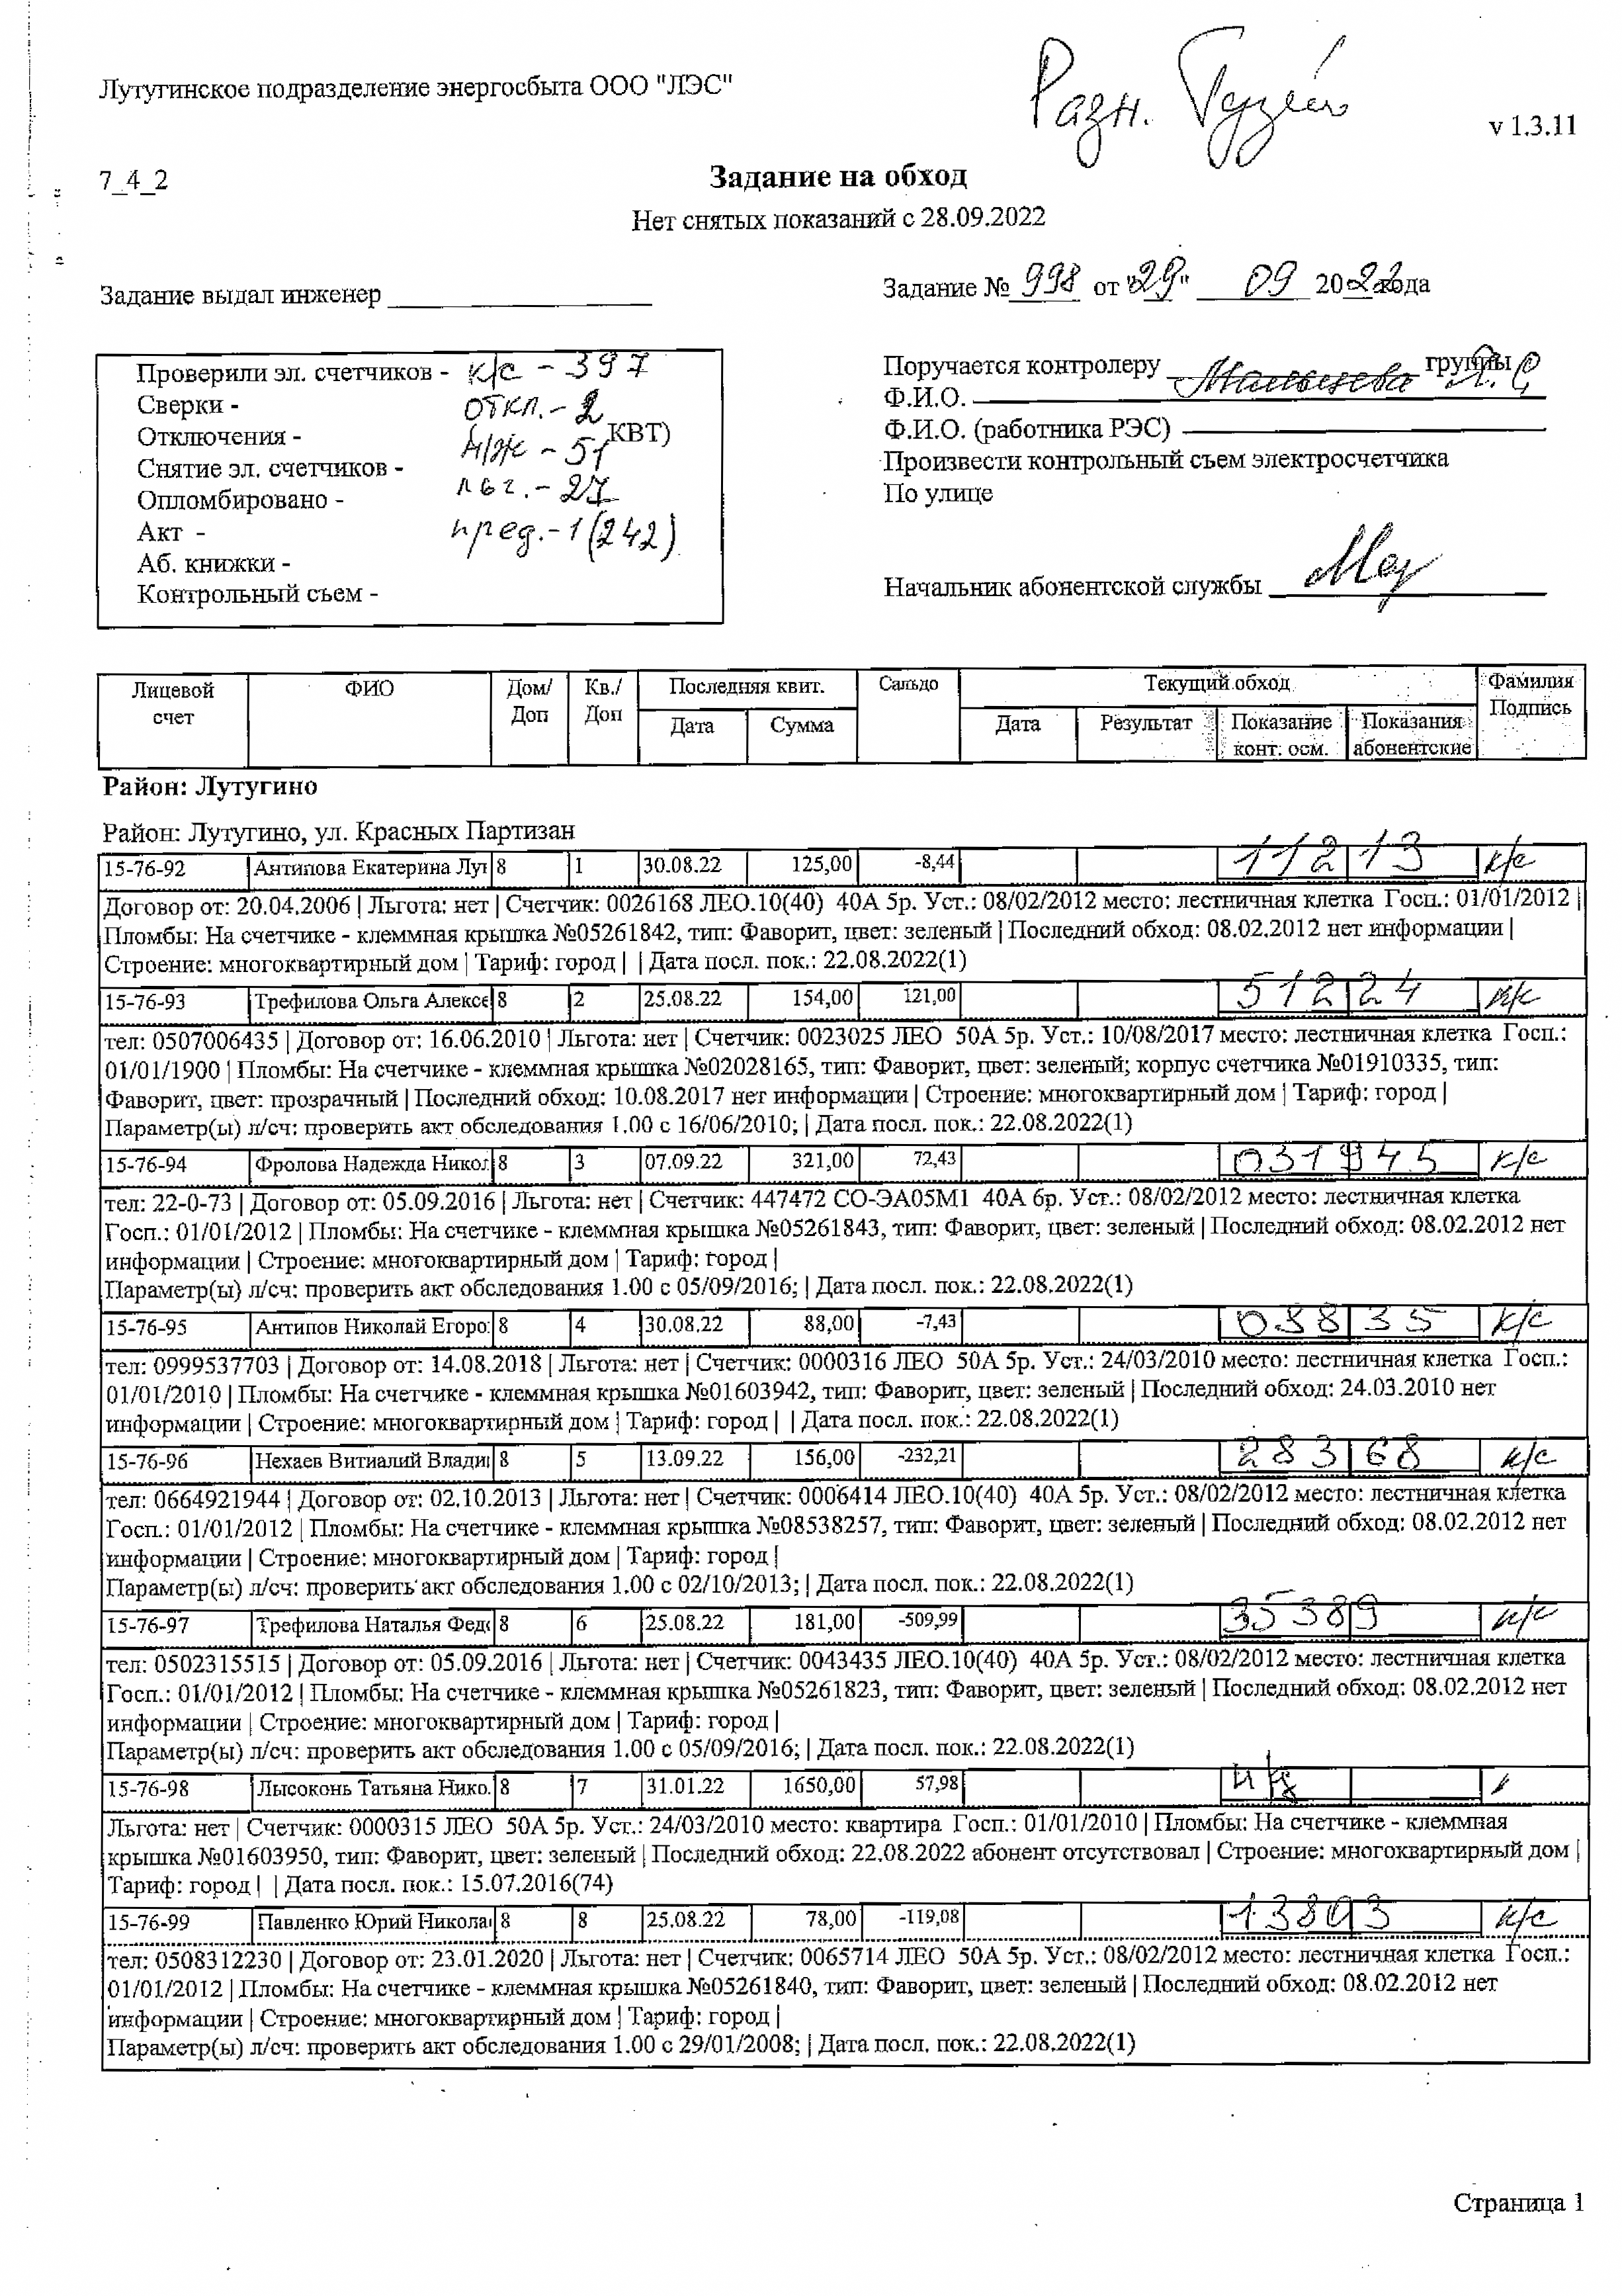 Лутугинское подразделение энергосбыта ООО "ЛЭС"
Разн.
v 1.3.11
7_4_2
Задание на обход
Нет снятых показаний с 28.09.2022
Задание выдал инженер
Задание № 998 от "29" 09 2022 года
Проверили эл. счетчиков - к/с - 397
Сверки - откл. - 2
Отключения - н/ж - 51 КВТ)
Снятие эл. счетчиков -
Опломбировано - льг. - 27
Акт - пред. - 1 (242)
Аб. книжки -
Контрольный съем -
Поручается контролеру группы
Ф.И.О.
Ф.И.О. (работника РЭС)
Произвести контрольный съем электросчетчика
По улице
Начальник абонентской службы
Лицевой счет ФИО Дом/ Доп Кв./ Доп Последняя квит. Сальдо Текущий обход Фамилия Подпись
Дата Сумма Дата Результат Показание конт. осм. Показания абонентские
Район: Лутугино
Район: Лутугино, ул. Красных Партизан
15-76-92 Антипова Екатерина Лут 8 1 30.08.22 125,00 -8,44 11213 к/с
Договор от: 20.04.2006 | Льгота: нет | Счетчик: 0026168 ЛЕО.10(40) 40А 5р. Уст.: 08/02/2012 место: лестничная клетка Госп.: 01/01/2012 |
Пломбы: На счетчике - клеммная крышка №05261842, тип: Фаворит, цвет: зеленый | Последний обход: 08.02.2012 нет информации |
Строение: многоквартирный дом | Тариф: город | | Дата посл. пок.: 22.08.2022(1)
15-76-93 Трефилова Ольга Алексе 8 2 25.08.22 154,00 121,00 51224 к/с
тел: 0507006435 | Договор от: 16.06.2010 | Льгота: нет | Счетчик: 0023025 ЛЕО 50А 5р. Уст.: 10/08/2017 место: лестничная клетка Госп.:
01/01/1900 | Пломбы: На счетчике - клеммная крышка №02028165, тип: Фаворит, цвет: зеленый; корпус счетчика №01910335, тип:
Фаворит, цвет: прозрачный | Последний обход: 10.08.2017 нет информации | Строение: многоквартирный дом | Тариф: город |
Параметр(ы) л/сч: проверить акт обследования 1.00 с 16/06/2010; | Дата посл. пок.: 22.08.2022(1)
15-76-94 Фролова Надежда Никол 8 3 07.09.22 321,00 72,43 031945 к/с
тел: 22-0-73 | Договор от: 05.09.2016 | Льгота: нет | Счетчик: 447472 СО-ЭА05М1 40А 6р. Уст.: 08/02/2012 место: лестничная клетка
Госп.: 01/01/2012 | Пломбы: На счетчике - клеммная крышка №05261843, тип: Фаворит, цвет: зеленый | Последний обход: 08.02.2012 нет
информации | Строение: многоквартирный дом | Тариф: город |
Параметр(ы) л/сч: проверить акт обследования 1.00 с 05/09/2016; | Дата посл. пок.: 22.08.2022(1)
15-76-95 Антипов Николай Егоро 8 4 30.08.22 88,00 -7,43 08835 к/с
тел: 0999537703 | Договор от: 14.08.2018 | Льгота: нет | Счетчик: 0000316 ЛЕО 50А 5р. Уст.: 24/03/2010 место: лестничная клетка Госп.:
01/01/2010 | Пломбы: На счетчике - клеммная крышка №01603942, тип: Фаворит, цвет: зеленый | Последний обход: 24.03.2010 нет
информации | Строение: многоквартирный дом | Тариф: город | | Дата посл. пок.: 22.08.2022(1)
15-76-96 Нехаев Витиалий Влади 8 5 13.09.22 156,00 -232,21 28368 к/с
тел: 0664921944 | Договор от: 02.10.2013 | Льгота: нет | Счетчик: 0006414 ЛЕО.10(40) 40А 5р. Уст.: 08/02/2012 место: лестничная клетка
Госп.: 01/01/2012 | Пломбы: На счетчике - клеммная крышка №08538257, тип: Фаворит, цвет: зеленый | Последний обход: 08.02.2012 нет
информации | Строение: многоквартирный дом | Тариф: город |
Параметр(ы) л/сч: проверить акт обследования 1.00 с 02/10/2013; | Дата посл. пок.: 22.08.2022(1)
15-76-97 Трефилова Наталья Фед 8 6 25.08.22 181,00 -509,99 35389 к/с
тел: 0502315515 | Договор от: 05.09.2016 | Льгота: нет | Счетчик: 0043435 ЛЕО.10(40) 40А 5р. Уст.: 08/02/2012 место: лестничная клетка
Госп.: 01/01/2012 | Пломбы: На счетчике - клеммная крышка №05261823, тип: Фаворит, цвет: зеленый | Последний обход: 08.02.2012 нет
информации | Строение: многоквартирный дом | Тариф: город |
Параметр(ы) л/сч: проверить акт обследования 1.00 с 05/09/2016; | Дата посл. пок.: 22.08.2022(1)
15-76-98 Лысоконь Татьяна Нико. 8 7 31.01.22 1650,00 57,98
Льгота: нет | Счетчик: 0000315 ЛЕО 50А 5р. Уст.: 24/03/2010 место: квартира Госп.: 01/01/2010 | Пломбы: На счетчике - клеммная
крышка №01603950, тип: Фаворит, цвет: зеленый | Последний обход: 22.08.2022 абонент отсутствовал | Строение: многоквартирный дом |
Тариф: город | | Дата посл. пок.: 15.07.2016(74)
15-76-99 Павленко Юрий Никола 8 8 25.08.22 78,00 -119,08 13803 к/с
тел: 0508312230 | Договор от: 23.01.2020 | Льгота: нет | Счетчик: 0065714 ЛЕО 50А 5р. Уст.: 08/02/2012 место: лестничная клетка Госп.:
01/01/2012 | Пломбы: На счетчике - клеммная крышка №05261840, тип: Фаворит, цвет: зеленый | Последний обход: 08.02.2012 нет
информации | Строение: многоквартирный дом | Тариф: город |
Параметр(ы) л/сч: проверить акт обследования 1.00 с 29/01/2008; | Дата посл. пок.: 22.08.2022(1)
Страница 1